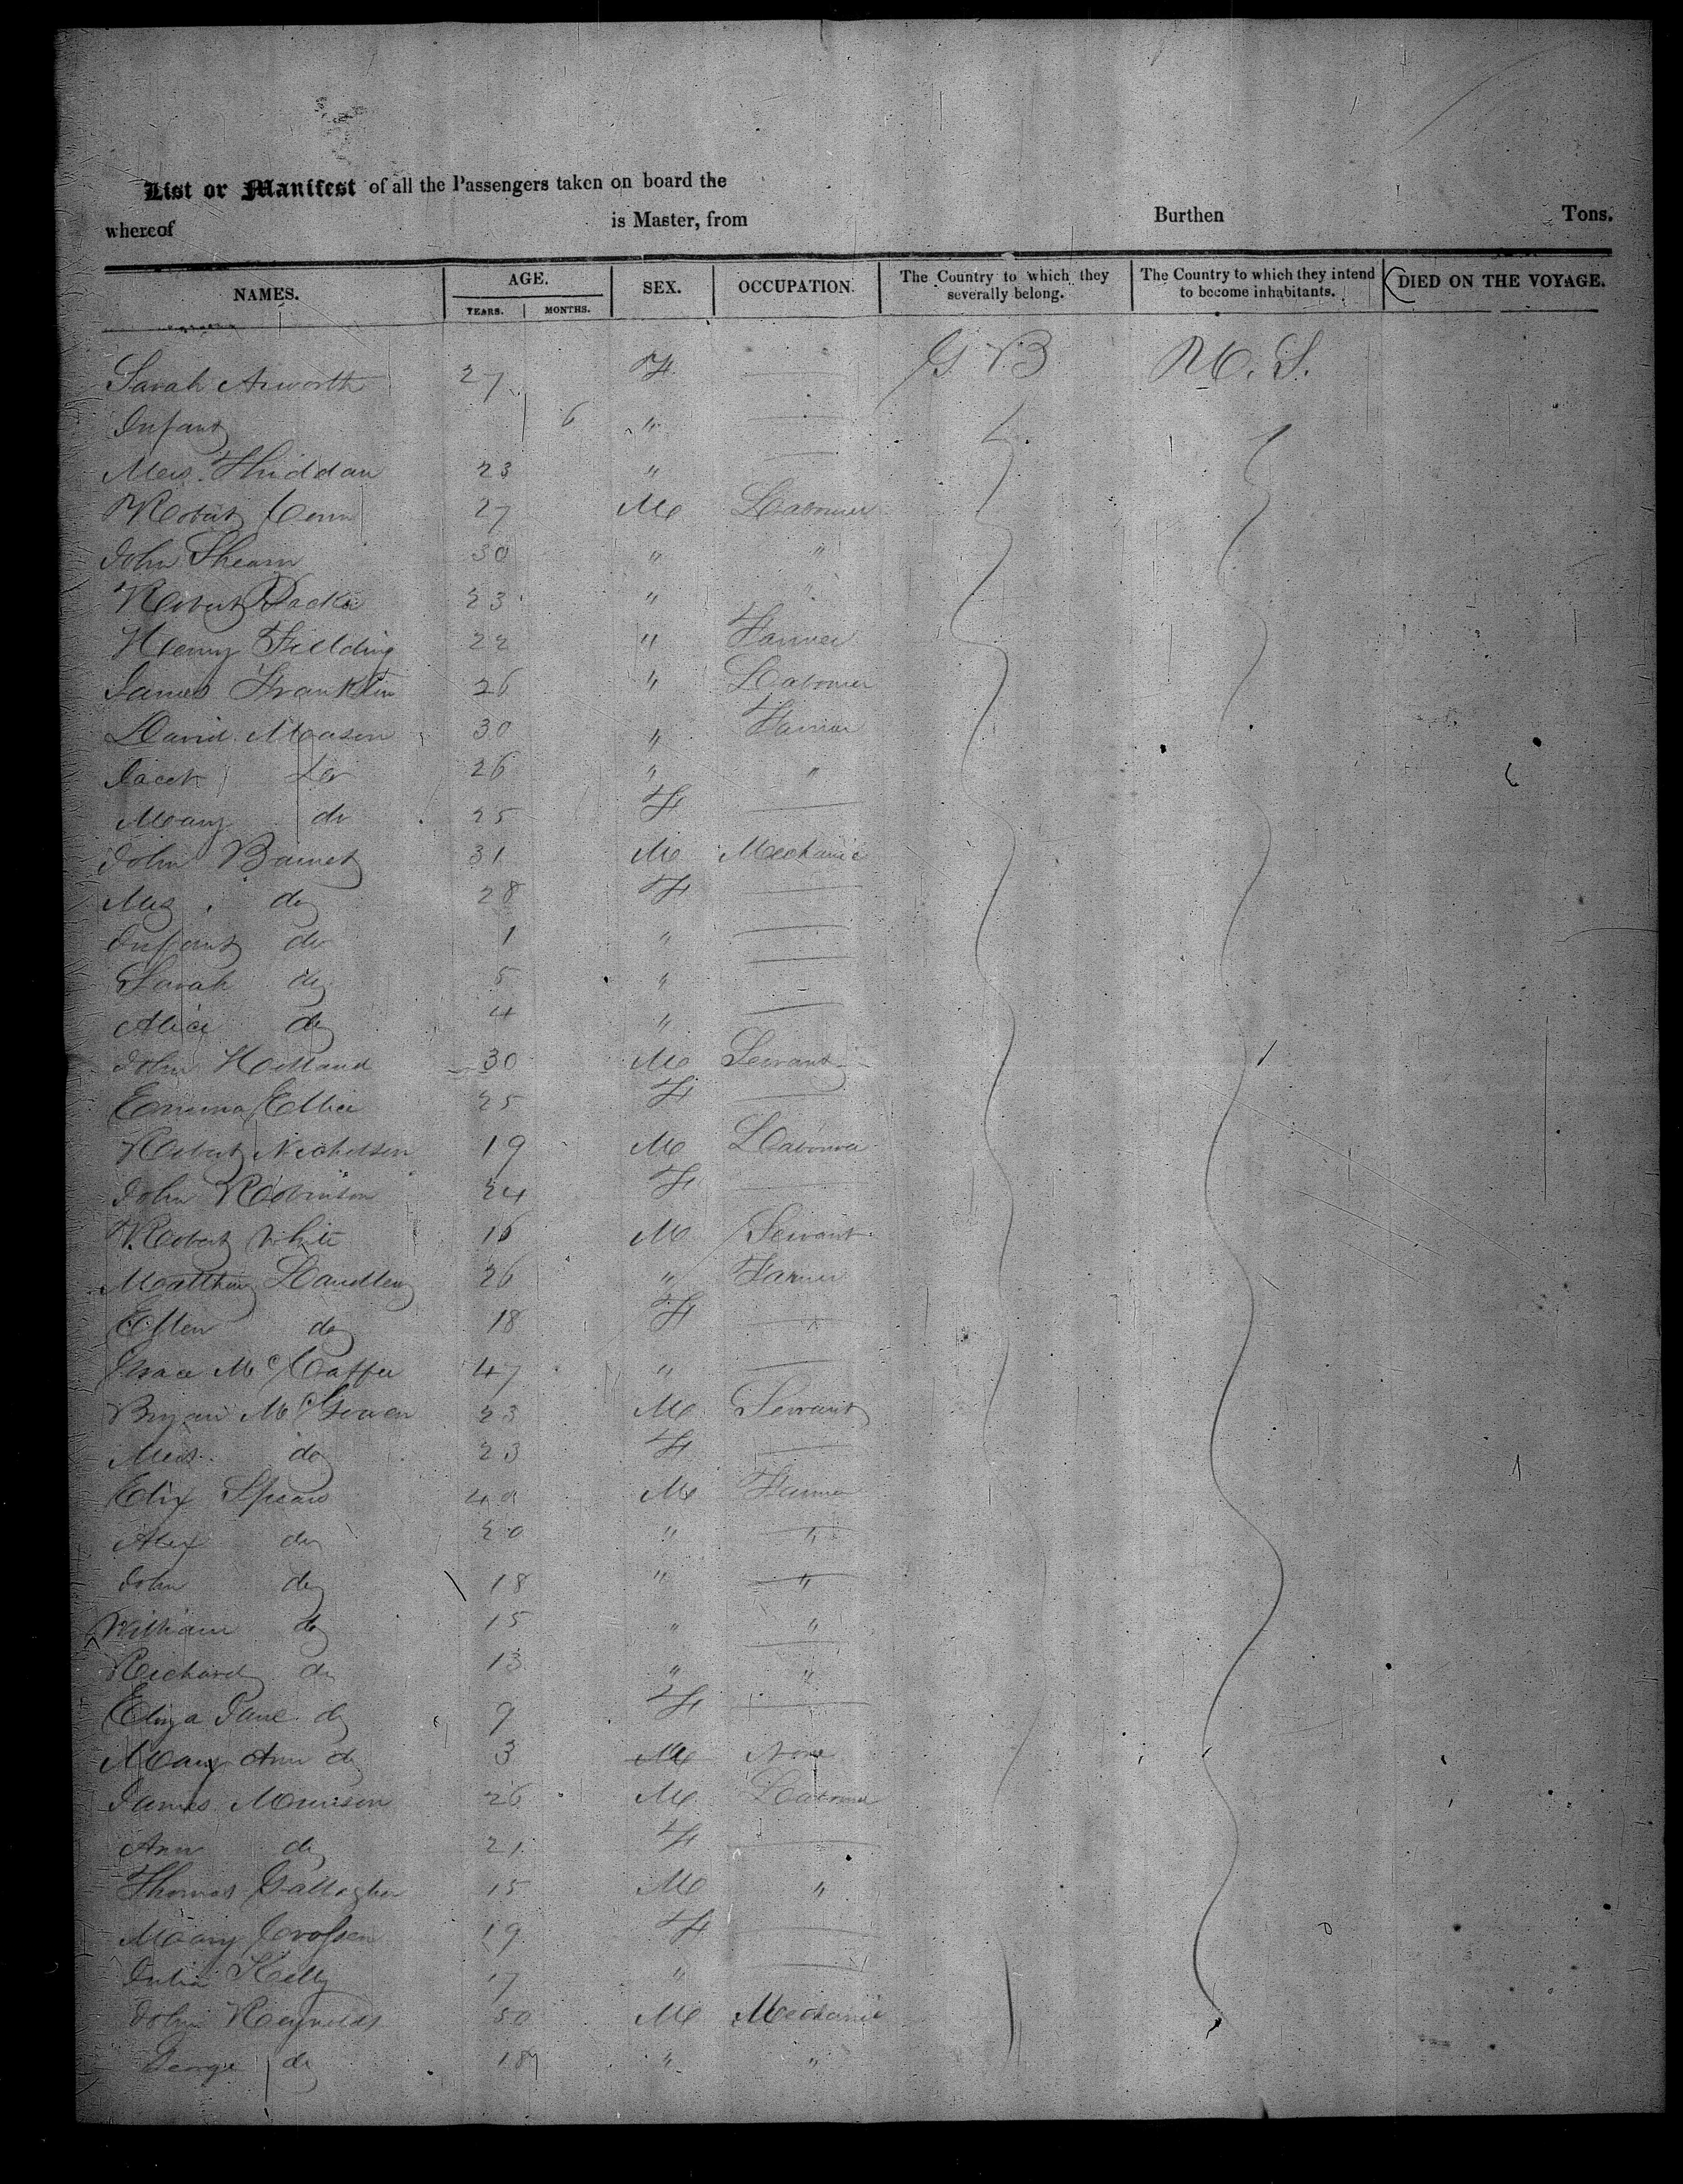 List or Manifest of all the Passengers taken on board the
whereof is Master, from Burthen Tons.
NAMES. AGE. YEARS. MONTHS. SEX. OCCUPATION. The Country to which they severally belong. The Country to which they intend to become inhabitants. DIED ON THE VOYAGE.
Sarah Asworth 27 F G. B U. S.
Infant 6 "
Mrs. 23 "
Robert 27 M Labourer
John Shearn 30 " "
Robert 23 " "
Henry Fielding 22 " Farmer
James Franklin 26 " Labourer
David Mason 30 " Farmer
Jacob do 26 " "
Mary do 25 F
John Barnet 31 M Mechanic
Mrs. do 28 F
Infant do 1 "
Sarah do 5 "
Alice do 4 "
John Holland 30 M Servant
Emma 25 F
Robert Nicholson 19 M Labourer
John Robinson 24 F
Robert White 16 M Servant
Matthew 26 " Farmer
Ellen do 18 F "
Grace McCaffer 47 "
Bryan McGowen 23 M Servant
Mrs. do 23 F
M Farmer
Alex do 20 " "
John do 18 " "
William do 15 " "
Richard do 13 " "
Eliza Jane do 9 F
Mary Ann do 3 M None
James Morrison 26 M Labourer
Ann do 21 F
Thomas Gallagher 15 M "
Mary Crossen 19 F
Julia Kelly 17 "
John Reynolds 50 M Mechanic
George do 18 " "